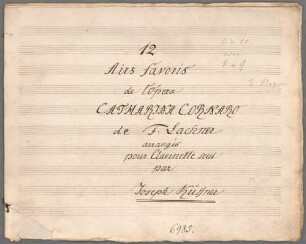 12
Airs favoris
de l'opera
CATHARINA CORNARO
de F. Lachner
arrangés
pour Clarinette seul
par
Joseph Küffner
6985.